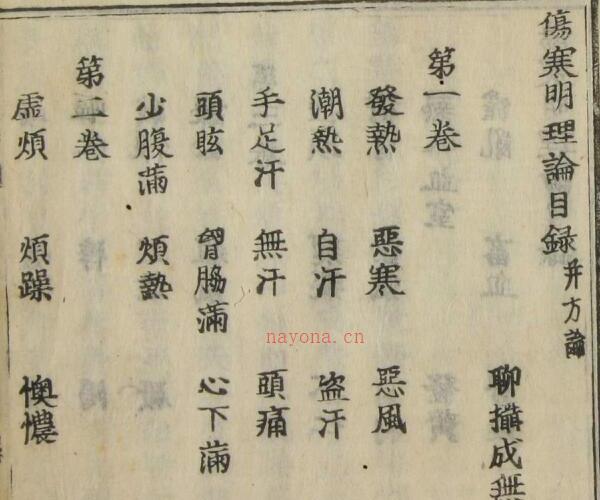 傷寒明理論目録 并方論
聊攝成無
第一卷
發熱 惡寒 惡風
潮熱 自汗 盜汗
手足汗 無汗 頭痛
頭眩 胷脇滿 心下滿
少腹滿 煩熱
第二卷
虛煩 煩躁 懊憹
nayona.cn